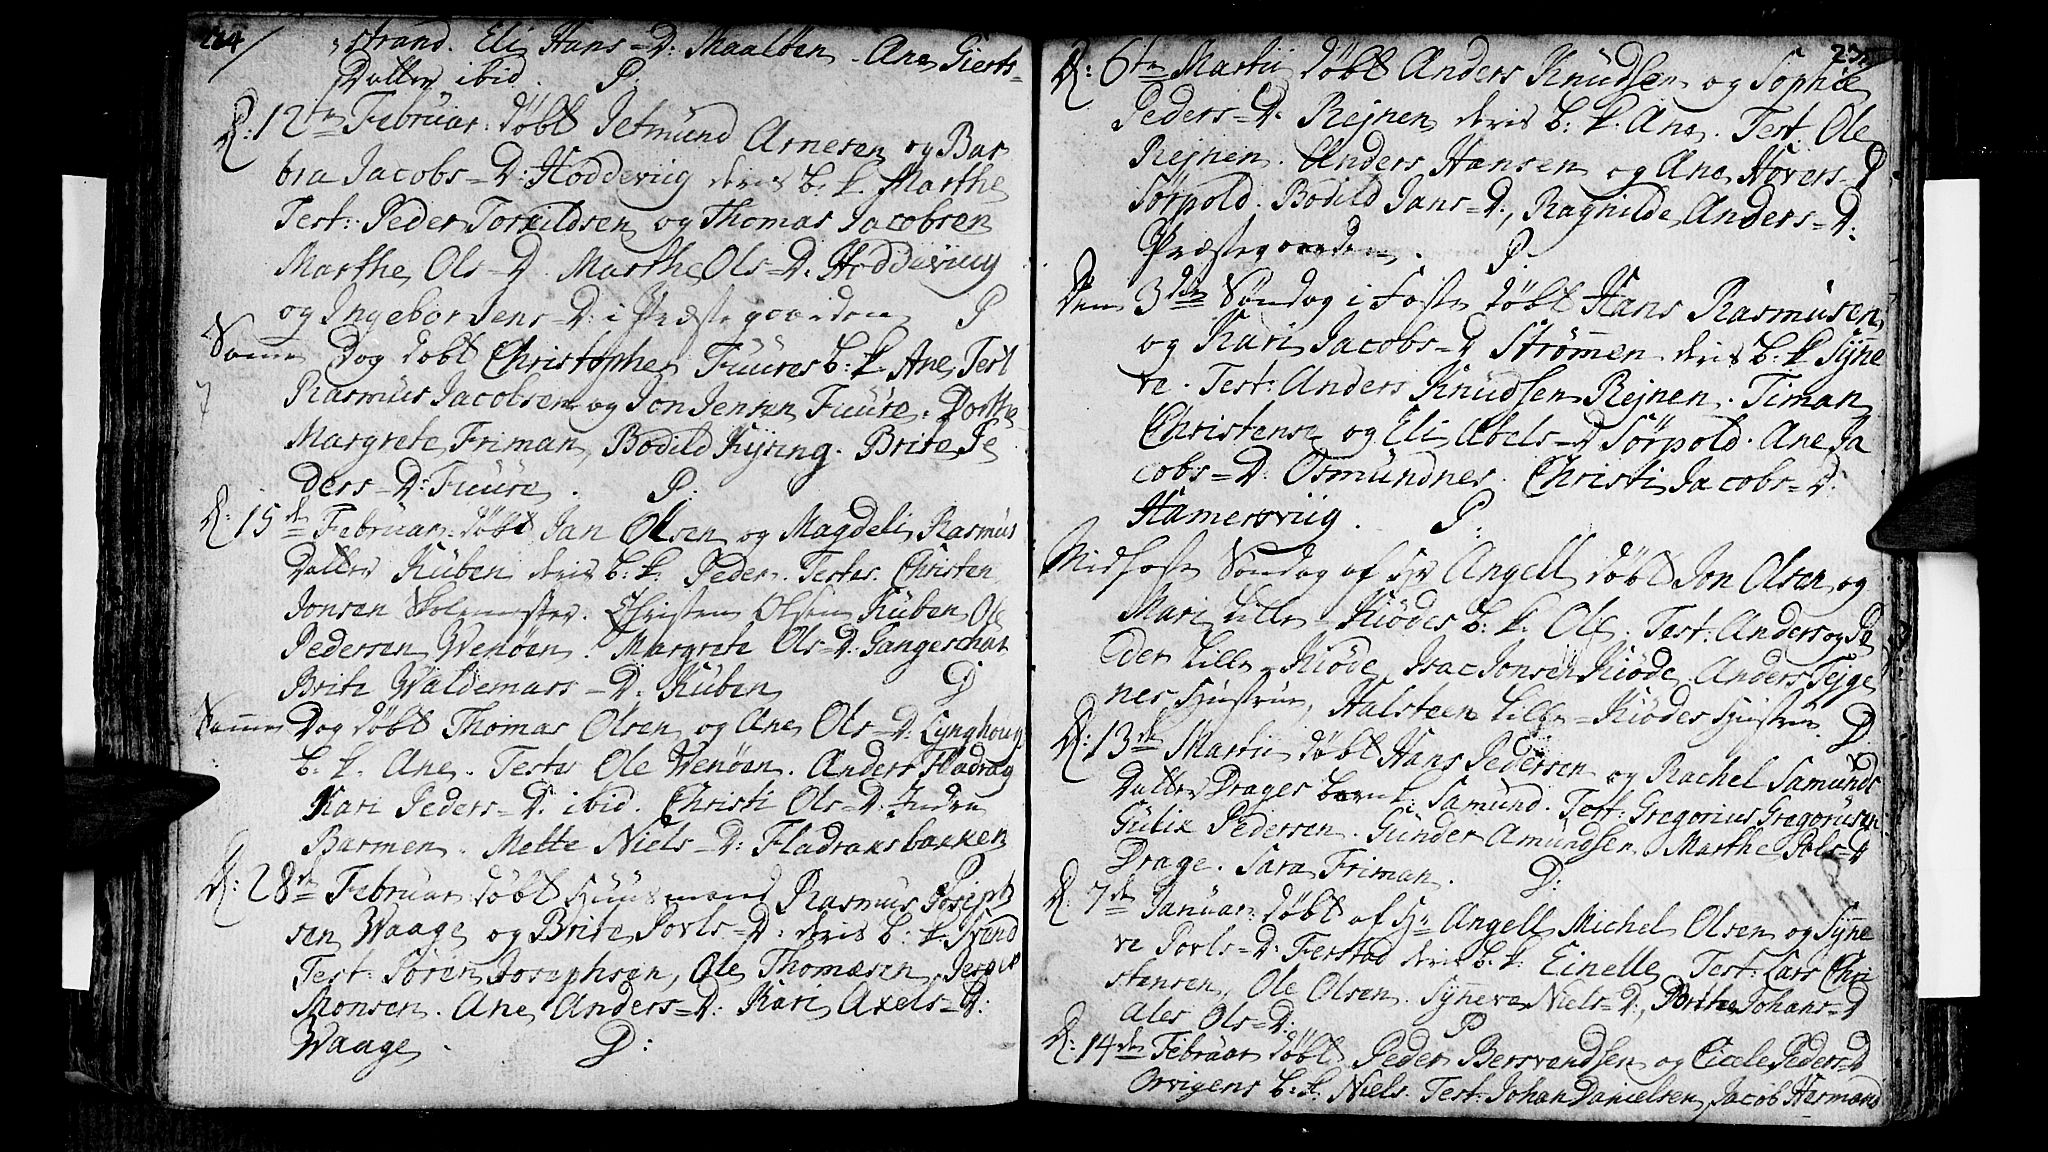 224
strand. Eli Hans-D: Maalben. Ane Gierts-
Datter ibid. P.
D: 12te Februar: døbt Jetmund Arnesen og Bar
bra Jacobs-D: Hoddeviig deris b: k. Marthe
Test: Peder Torkildsen og Thomas Jacobsen
Marthe Ols-D. Marthe Ols-D: Hoddeviig
og Ingebor Jens-D: i Præstegaarden P
Samme Dag døbt Christopher Fuures b: k Ane, Test
Rasmus Jacobsen og Jon Jensen Fuure. Dorthe
Margrete Friman, Bodild Kysing. Brite Pe
ders-D: Fuure. P:
D: 15de Februar: døbt Jan Olsen og Magdeli Rasmus
Datter Kuben deris b: k. Peder. Testes. Christen
Jonsen Skolemester. Christen Olsen Kuben, Ole
Pedersen Wenøen. Margrete Ols-D: Gangeschar
Brite Waldemars-D: Kuben D
Samme Dag døbt Thomas Olsen og Ane Ols-D: Lynghoug
b. k. Ane. Testes Ole Wenøen. Anders Fladrag
Kari Peders-D: ibid. Christi Ols-D. Indre
Barmen. Mette Niels-D: Fladraksbakken
D: 28de Februar døbt Huusmand Rasmus Joseph
sen Waage og Brite Povls-D: deris b: k. Svend
Test: Søren Josephsen, Ole Thomæsen, Jesper
Monsen. Ane Anders-D: Kari Axels-D:
Waage. D:
D: 6te Martii døbt Anders Knudsen og Sophie
Peders-D: Rejnen deris b: k. Ane. Test. Ole
Rejnen. Anders Hansen og Ane Hovers-D
Sørpold. Bodild Jans-D:, Raghilde Anders-D:
Præstegaarden. P
Dom 3die Søndag i Faste døbt Hans Rasmusen
og Kari Jacobs-D Strømen deris b: k Syne
ve. Test: Anders Knudsen Rejnen. Timan
Christense og Eli Abels-D Sørpold. Ane Ja
cobs-D: Osmundnes. Christi Jacobs-D:
Hamersviig. P:
Midfaste Søndag af Hr Angell døbt Jon Olsen og
Mari Lille-Kiødes b. k. Ole. Test: Anders og Pe
der Lille-Kiøde, Isac Jonsen Kiøde, Anders Tejge
nes Hustrue, Halsteen Lille-Kiødes Hustrue D
D: 13de Martii døbt Hans Pedersen og Rachel Samunds
Datter Drages barn k. Samund. Test: Gregorius Gregoriusen
Gulik Pedersen. Gunder Amundsen, Marthe Pols-D
Drage. Sara Friman. D:
D: 7de Januar: døbt af Hr Angell Michel Olsen og Syne
ve Povls-D: Ferstad deris b. k. Einelle Test: Lars Chri
stensen, Ole Olsen. Syneve Niels-D:, Brite Johans-D
Ales Ols-D: P
D: 14de Februar døbt Peder Bersvendsen og Cicele Peders-D
Orvigens b: k. Niels. Test: Johan Danielsen, Jacob Harmand